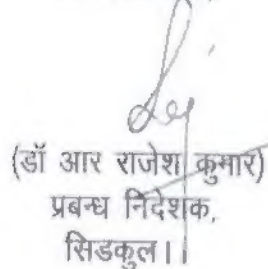 (डॉ आर राजेश कुमार)
प्रबन्ध निदेशक,
सिडकुल।।